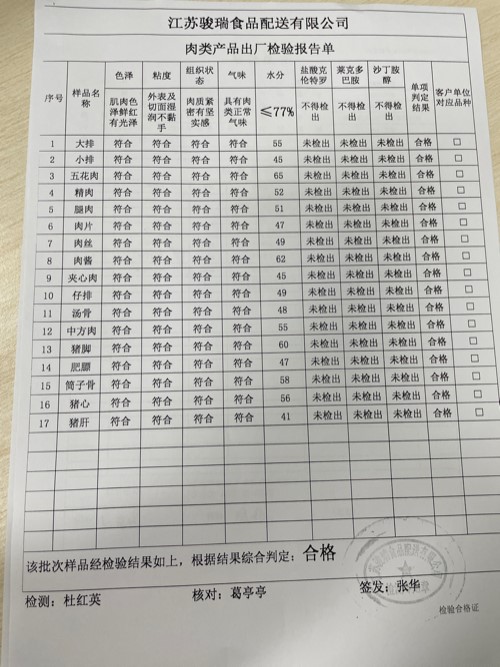 江苏骏瑞食品配送有限公司
肉类产品出厂检验报告单
序号 样品名称 色泽 粘度 组织状态 气味 水分 盐酸克伦特罗 莱克多巴胺 沙丁胺醇 单项判定结果 客户单位对应品种
肌肉色泽鲜红有光泽 外表及切面湿润不黏手 肉质紧密有坚实感 具有肉类正常气味 ≤77% 不得检出 不得检出 不得检出
1 大排 符合 符合 符合 符合 55 未检出 未检出 未检出 合格 □
2 小排 符合 符合 符合 符合 45 未检出 未检出 未检出 合格 □
3 五花肉 符合 符合 符合 符合 65 未检出 未检出 未检出 合格 □
4 精肉 符合 符合 符合 符合 52 未检出 未检出 未检出 合格 □
5 腿肉 符合 符合 符合 符合 51 未检出 未检出 未检出 合格 □
6 肉片 符合 符合 符合 符合 47 未检出 未检出 未检出 合格 □
7 肉丝 符合 符合 符合 符合 49 未检出 未检出 未检出 合格 □
8 肉酱 符合 符合 符合 符合 62 未检出 未检出 未检出 合格 □
9 夹心肉 符合 符合 符合 符合 45 未检出 未检出 未检出 合格 □
10 仔排 符合 符合 符合 符合 49 未检出 未检出 未检出 合格 □
11 汤骨 符合 符合 符合 符合 48 未检出 未检出 未检出 合格 □
12 中方肉 符合 符合 符合 符合 55 未检出 未检出 未检出 合格 □
13 猪脚 符合 符合 符合 符合 60 未检出 未检出 未检出 合格 □
14 肥膘 符合 符合 符合 符合 47 未检出 未检出 未检出 合格 □
15 筒子骨 符合 符合 符合 符合 58 未检出 未检出 未检出 合格 □
16 猪心 符合 符合 符合 符合 56 未检出 未检出 未检出 合格 □
17 猪肝 符合 符合 符合 符合 41 未检出 未检出 未检出 合格 □
该批次样品经检验结果如上，根据结果综合判定：合格
检测：杜红英 核对：葛亭亭 签发：张华
检验合格证